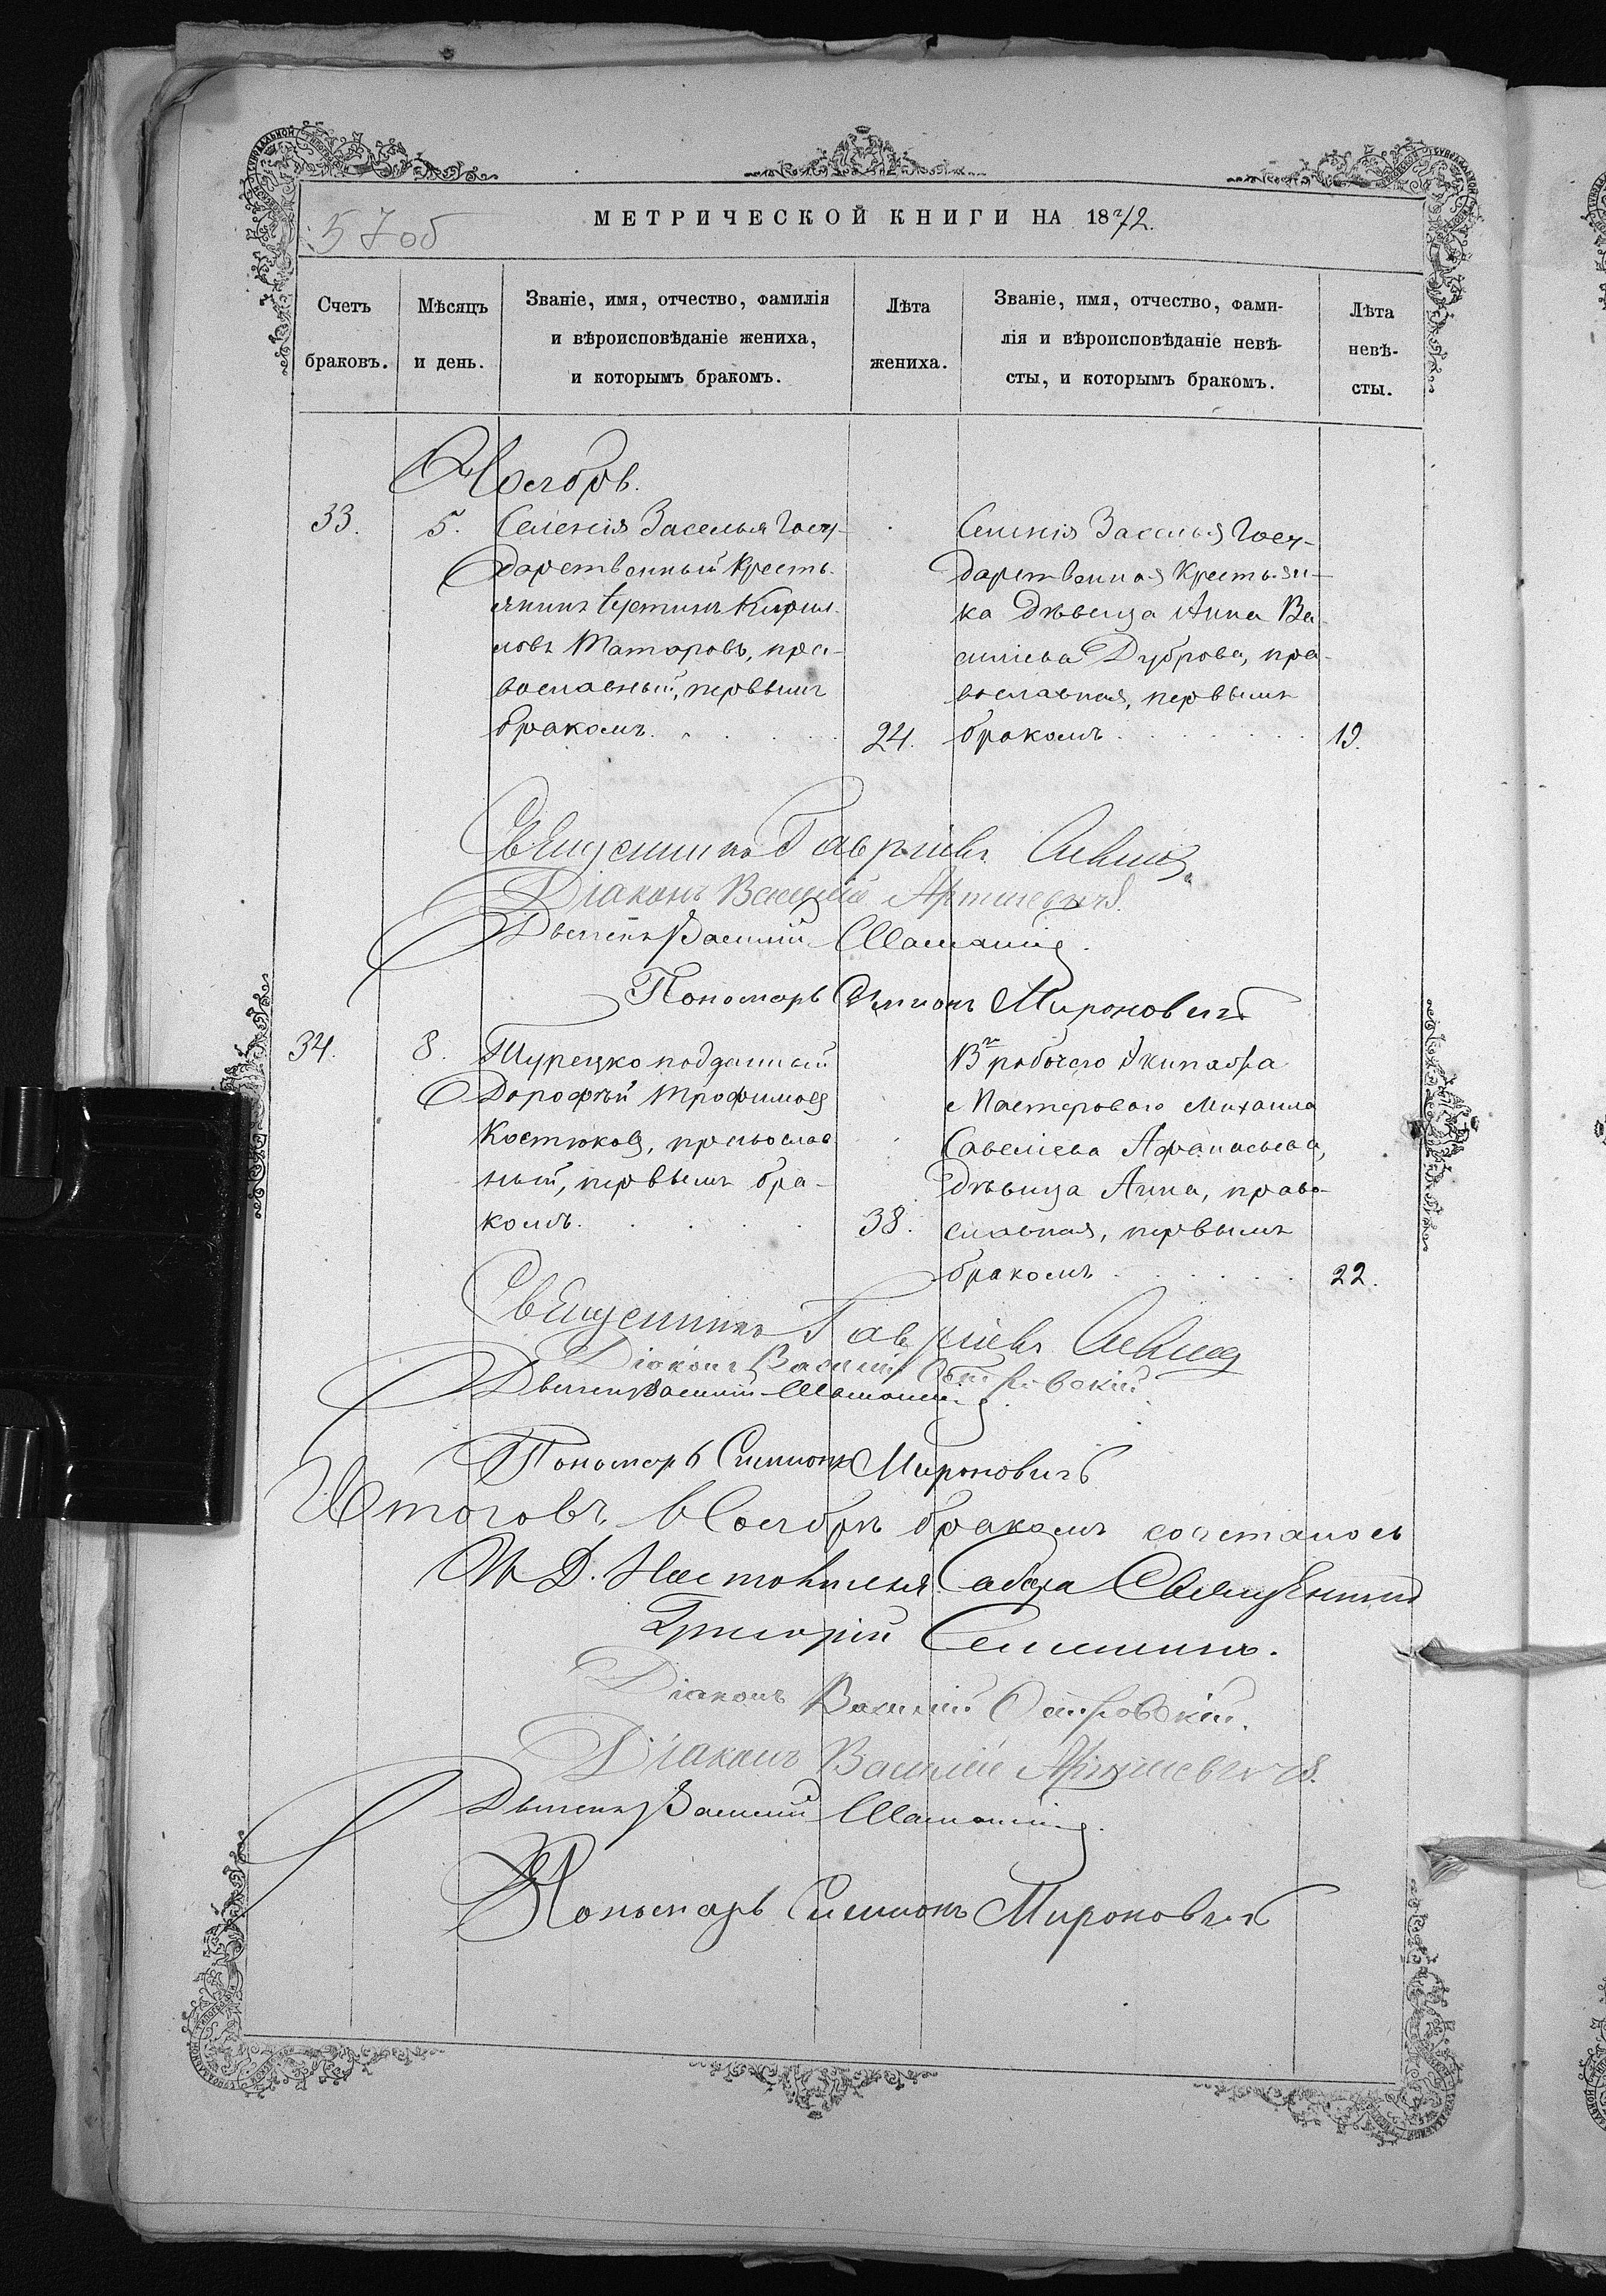 57об
МЕТРИЧЕСКОЙ КНИГИ НА 1872.
Счетъ браковъ.
Мѣсяцъ и день.
Званіе, имя, отчество, фамилія
и вѣроисповѣданіе жениха,
и которымъ бракомъ.
Лѣта жениха.
Званіе, имя, отчество, фами-
лія и вѣроисповѣданіе невѣ-
сты, и которымъ бракомъ.
Лѣта невѣ-
сты.
Ноябрь.
33.
5.
Селенія Заселья Госу-
дарственный Кресть-
янинъ Іустинъ Кирил-
ловъ Таторовъ, пра-
вославный, первымъ
бракомъ.
24.
Селенія Заселья Госу-
дарственная Крестьян-
ка дѣвица Анна Ва-
силіева Дуброва, пра-
вославная, первымъ
бракомъ
19.
Священникъ Гавріилъ
Діаконъ Василій Артишевичъ.
Дьячекъ Василій
Пономарь Симіонъ Мироновичъ
34.
8.
Турецко подданный
Дорофѣй Трофимовъ
Костюковъ, православ
ный, первымъ бра-
комъ.
38.
В го рабочего Экипажа
Мастерового Михаила
Савеліева Афанасьева,
дѣвица Анна, право-
славная, первымъ
бракомъ
22.
Священникъ Гавріилъ
Діаконъ Василій Островскій.
Дьячекъ Василій
Пономарь Симіонъ Мироновичъ
Итого въ Ноябрѣ бракомъ сочеталось
И. Д. Настоятеля Собора Священникъ
Григорій
Діаконъ Василій Островскій.
Діаконъ Василій Артишевичъ.
Дьячекъ Василій
Пономарь Симіонъ Мироновичъ